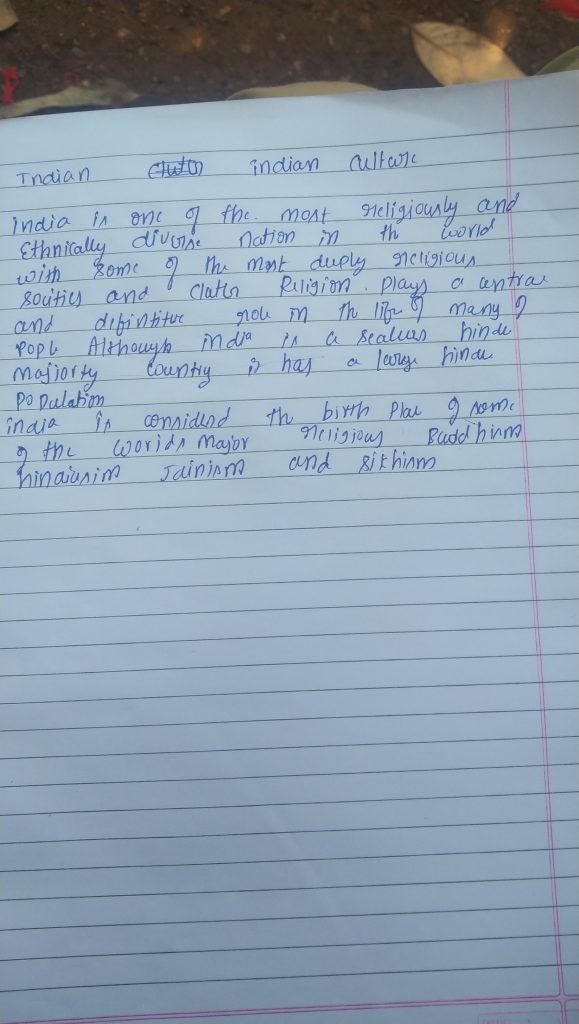 Indian indian culture
india is one of the. most religiously and
Ethnically diverse nation in th world
with some of the most deeply religious
socitics and Clatln Religion. plays a centrae
and difintitve role in th life of many of
Popl Although india is a sealurs hindu
majiorty Country is has a large hindu
Population
india is considerd th birth Plac of some
of the worlds major religious Buddhism
hinduisim Jainism and Sikhism